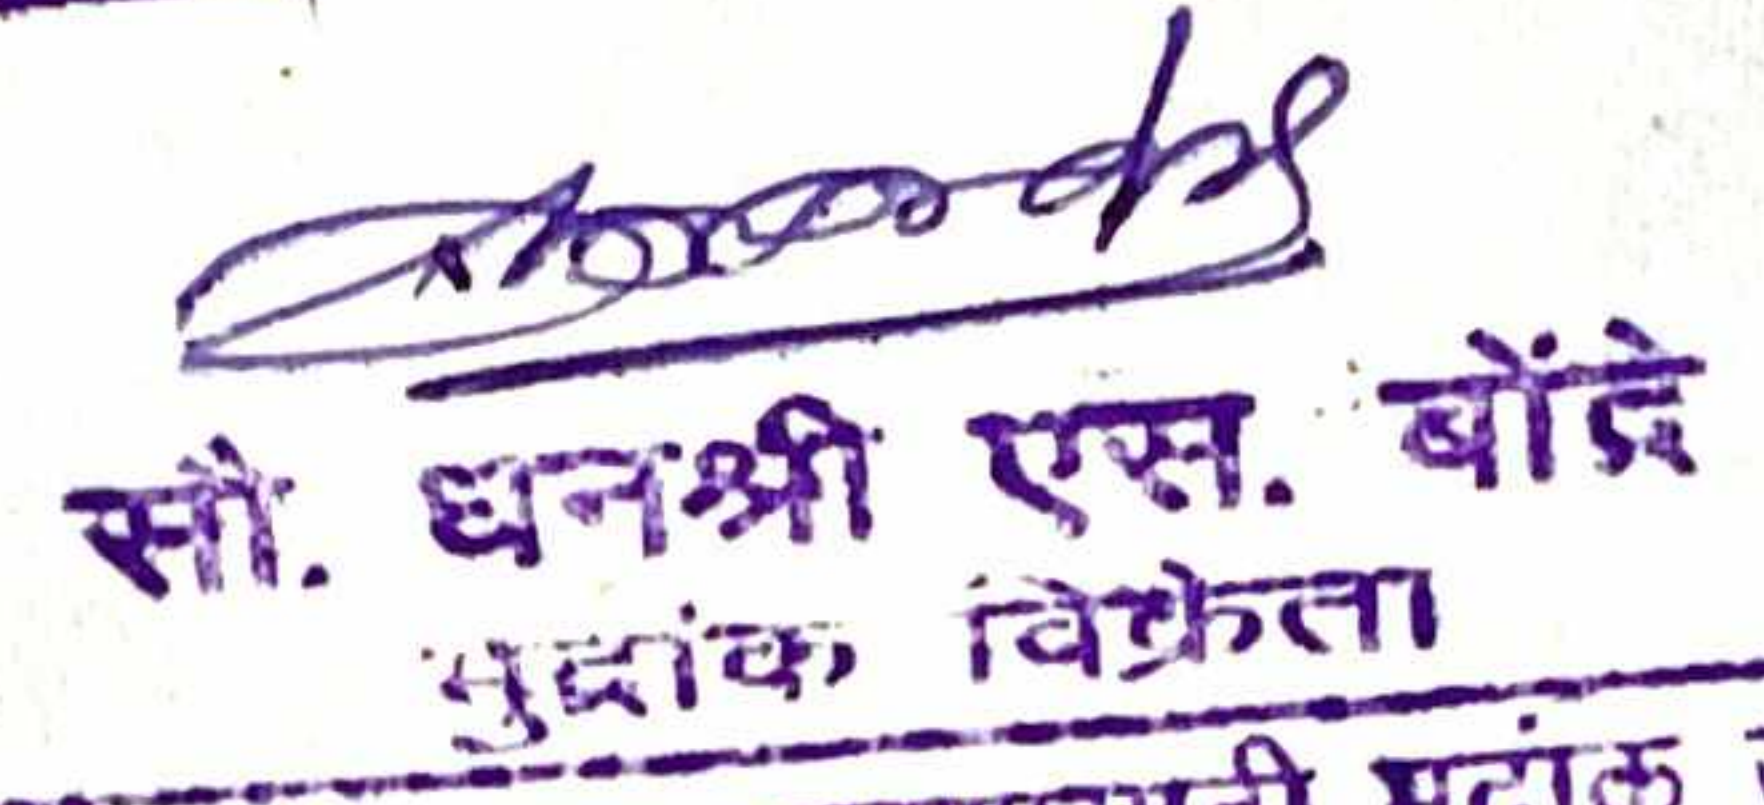 सौ. धनश्री एस. बोंद्रे
मुद्रांक विक्रेता